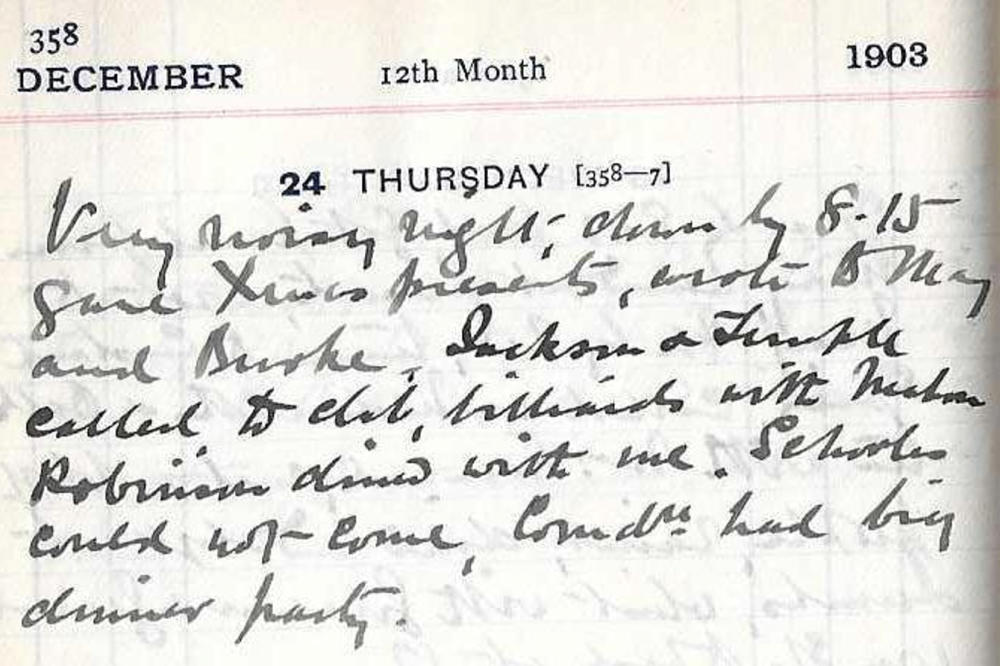 358
DECEMBER 12th Month 1903
24 THURSDAY [358—7]
Very noisy night, down by 8-15
gave Xmas presents, wrote to May
and Burke. Jackson & Temple
called, to club, billiards with
Robinson dined with me. Scholes
could not come, Comdrs had big
dinner party.